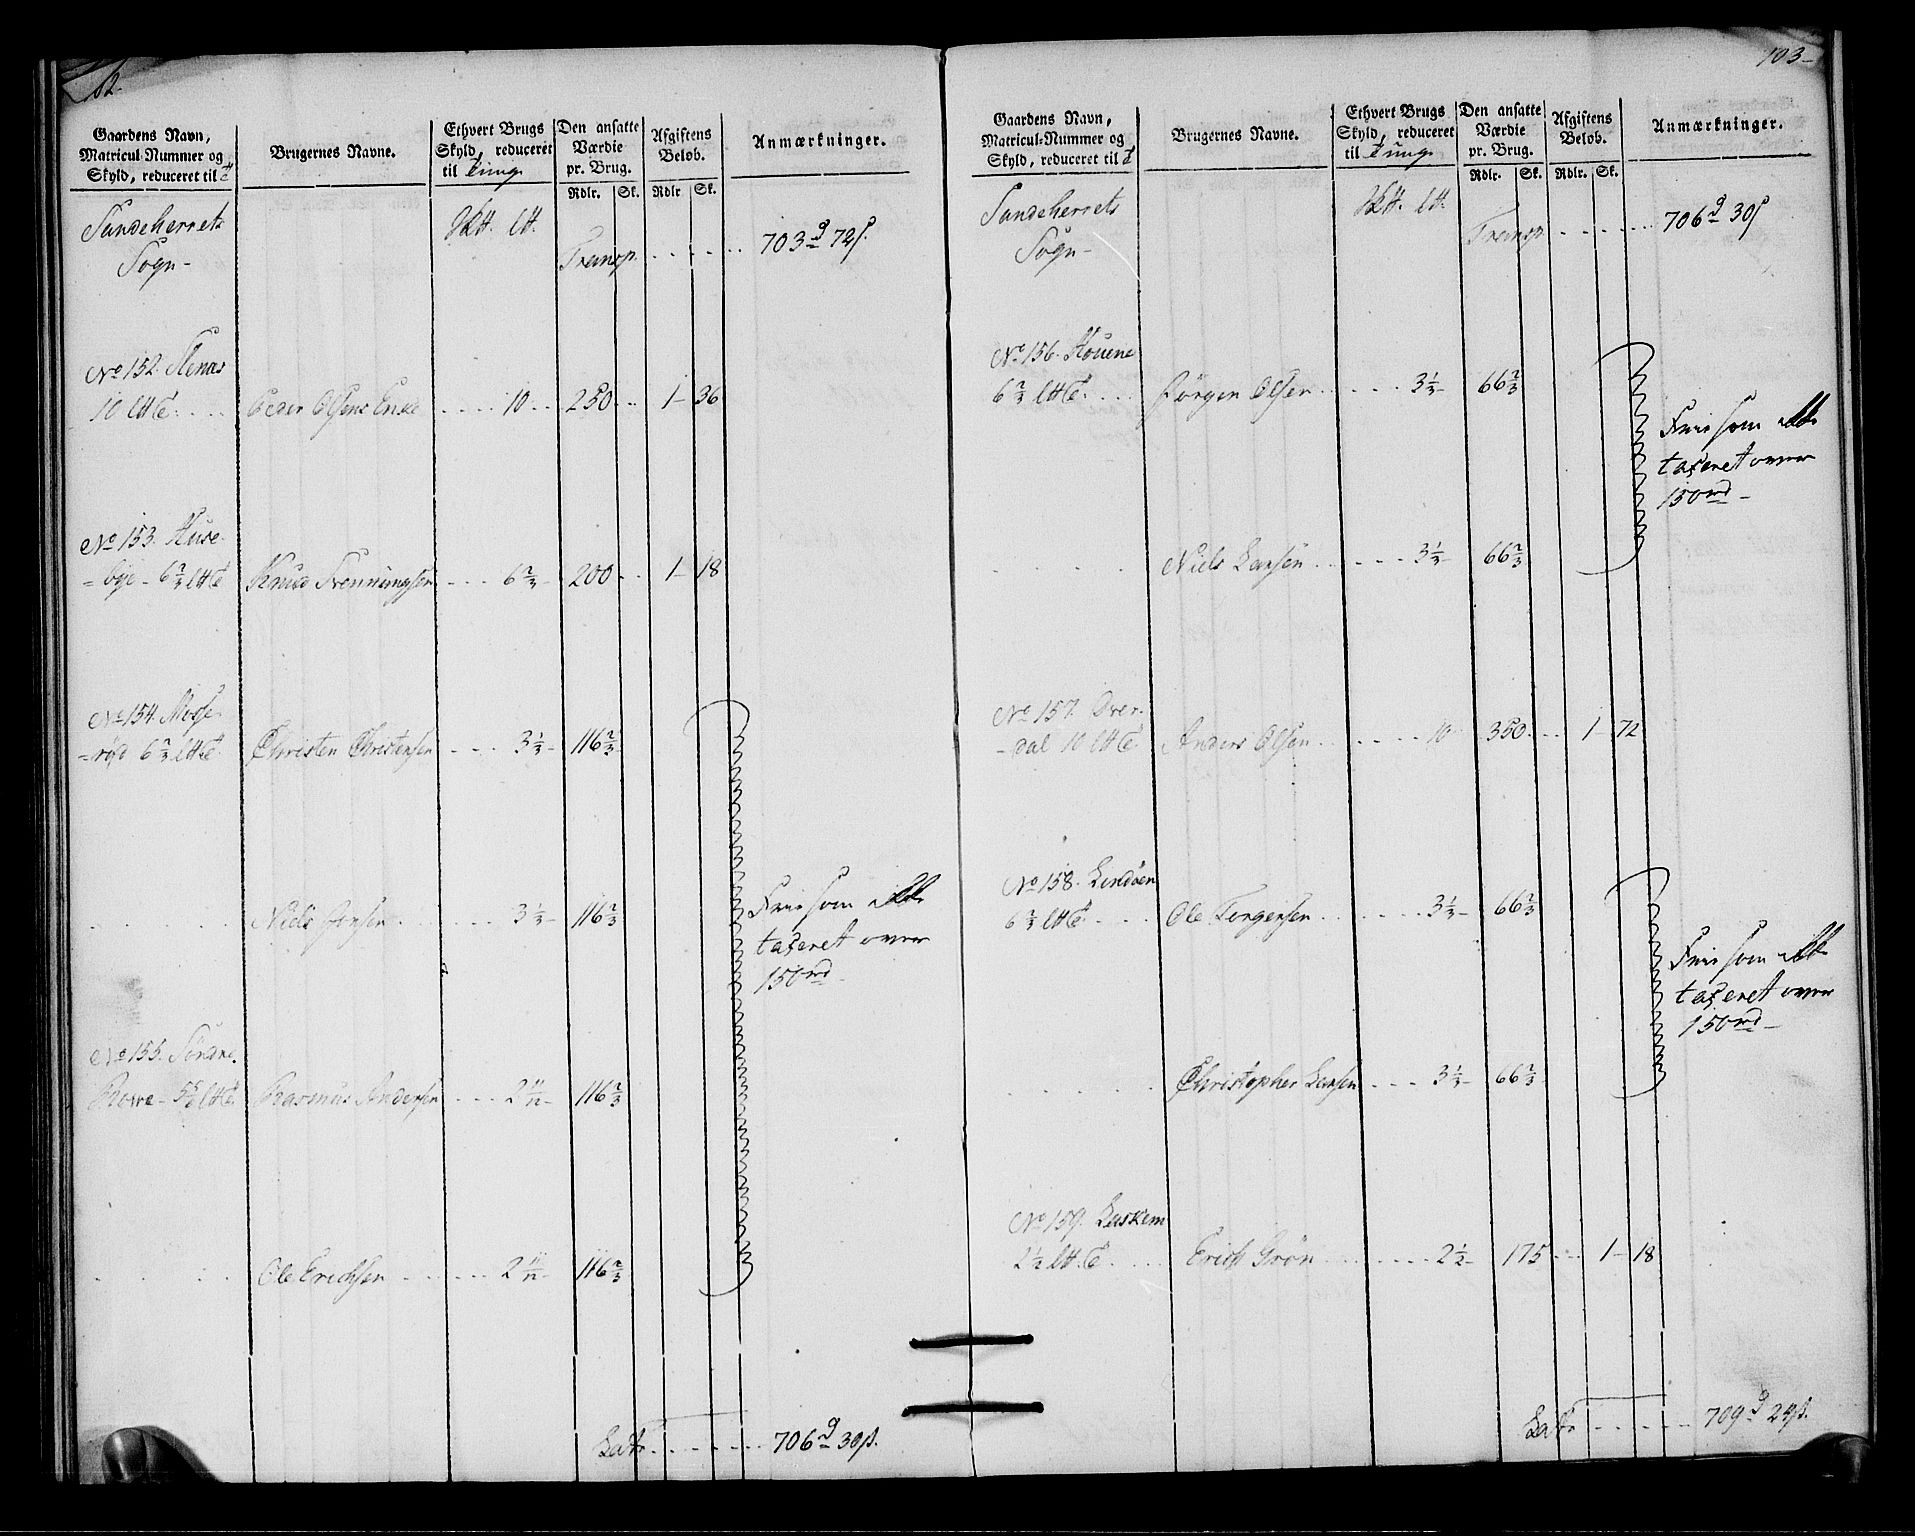 Gaardens Navn, Matricul-Nummer og Skyld, reduceret til
Brugernes Navne.
Ethvert Brugs Skyld, reduceret til Tunge
Den ansatte Værdie pr. Brug.
Afgiftens Beløb.
Anmærkninger.
Rdlr. Sk. Rdlr Sk.
Sandeherrets
Sogn-
Transp. 703 72
No 152. Stenaas
10 Peder Olsens Enke 10 250 1 36
No 153. Huse-
=bye - 6 2/3 Knud Frenningsen 6 2/3 200 1 18
No 154. Mosse
=rød 6 2/3 Christen Christensen 3 1/3 116 2/3
Niels Jonsen 3 1/3 116 2/3
Frie som ikke
taxeret over
150 rd
No 155. Söndre
Rowe - 5 5/6 Rasmus Andersen 2 11/12 116 2/3
Ole Erichsen 2 11/12 116 2/3
Latr 706 30
103
Gaardens Navn, Matricul-Nummer og Skyld, reduceret til
Brugernes Navne.
Ethvert Brugs Skyld, reduceret til Tunge
Den ansatte Værdie pr. Brug.
Afgiftens Beløb.
Anmærkninger.
Rdlr. Sk. Rdlr. Sk.
Sandeherrets
Sogn-
Transp 706 30
No 156. Houene
6 2/3 Jörgen Olsen 3 1/3 66 2/3
Frie som ikke
taxeret over
150 rd
Niels Larsen 3 1/3 66 2/3
No 157. Over-
-dal 10 Anders Olsen 10 350 1 72
No 158. Lindöen
6 2/3 Ole Torgersen 3 1/3 66 2/3
Frie som ikke
taxeret over
150 rd
Christopher Larsen 3 1/3 66 2/3
No 159. Laskem
2 1/2 Erich Grön 2 1/2 175 1 18
Latr 709 24